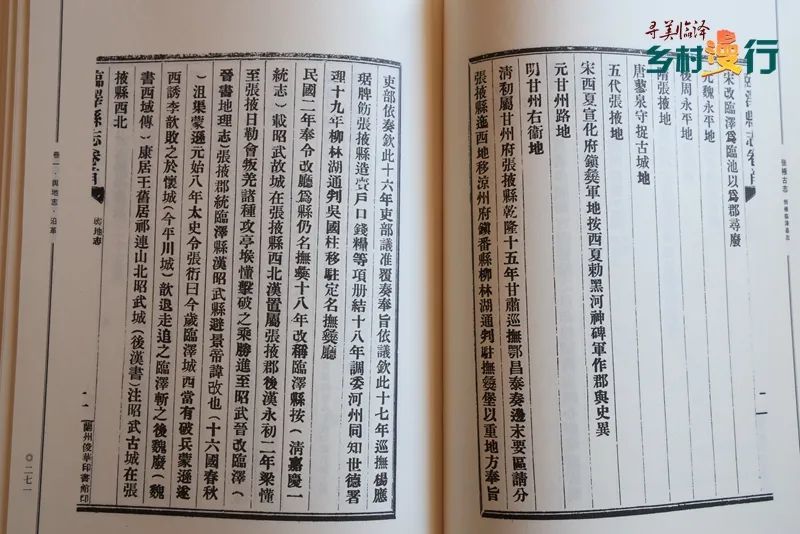 寻美临泽
乡村漫行
張掖古志
澤縣志卷首
宋改臨澤爲臨池以爲郡尋廢
元魏永平地
後周永平地
隋張掖地
唐蓼泉守捉古城地
五代張掖地
宋西夏宣化府鎭彝軍地按西夏勅黑河神碑軍作郡與史異
元甘州路地
明甘州右衞地
清初屬甘州府張掖縣乾隆十五年甘肅巡撫鄂昌泰奏邊末要區請分
張掖縣迤西地移涼州府鎭番縣柳林湖通判駐撫彝堡以重地方奉旨
吏部依奏欽此十六年吏部議准覆奏奉旨依議欽此十七年巡撫楊應
琚牌飭張掖縣造賫戶口錢糧等項册結十八年調委河州同知世德署
理十九年柳林湖通判吳國柱移駐定名撫彝廳
民國二年奉令改廳爲縣仍名撫彝十八年改稱臨澤縣按（淸嘉慶一
統志）載昭武故城在張掖縣西北漢置屬張掖郡後漢永初二年梁慬
至張掖日勒會叛羌諸種攻亭堠慬擊破之乘勝進至昭武晉改臨澤（
晉書地理志）張掖郡統臨澤縣漢昭武縣避景帝諱改也（十六國春秋
）沮渠蒙遜元始八年太史令張衍曰今歲臨澤城西當有破兵蒙遜遂
西誘李歆敗之於懷城（今平川城）歆退走追之臨澤斬之後魏廢（魏
書西域傳）康居王舊居祁連山北昭武城（後漢書）注昭武古城在張
掖縣西北
臨澤縣志卷首
輿地志
二
蘭州俊華印書館印
卷一·輿地志·沿革
〇二七一